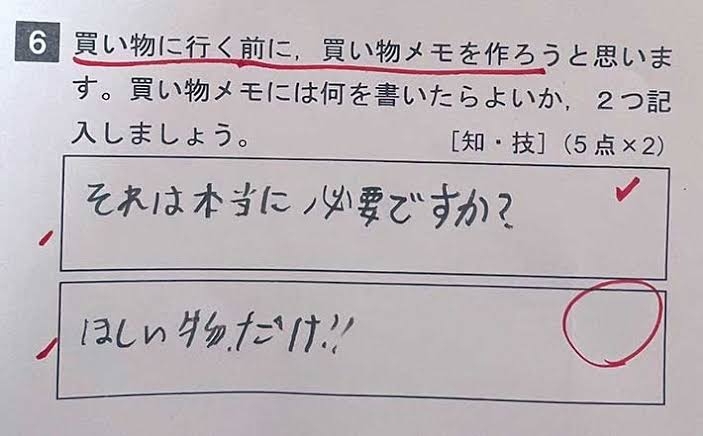 6 買い物に行く前に，買い物メモを作ろうと思いま
す。買い物メモには何を書いたらよいか，２つ記
入しましょう。 ［知・技］（５点×２）
それは本当に必要ですか？
ほしい物だけ!!